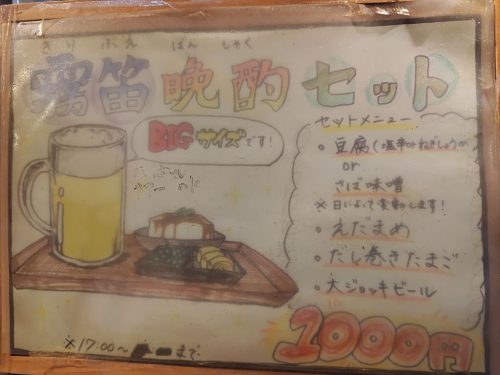 きりぶえ ばんしゃく
霧笛晩酌セット
BIGサイズです!
セットメニュー
・豆腐(塩辛orねぎしょうが)
or
さば味噌
※日によって変動します!
・えだまめ
・だし巻きたまご
・大ジョッキビール
2000円
※17:00〜 まで